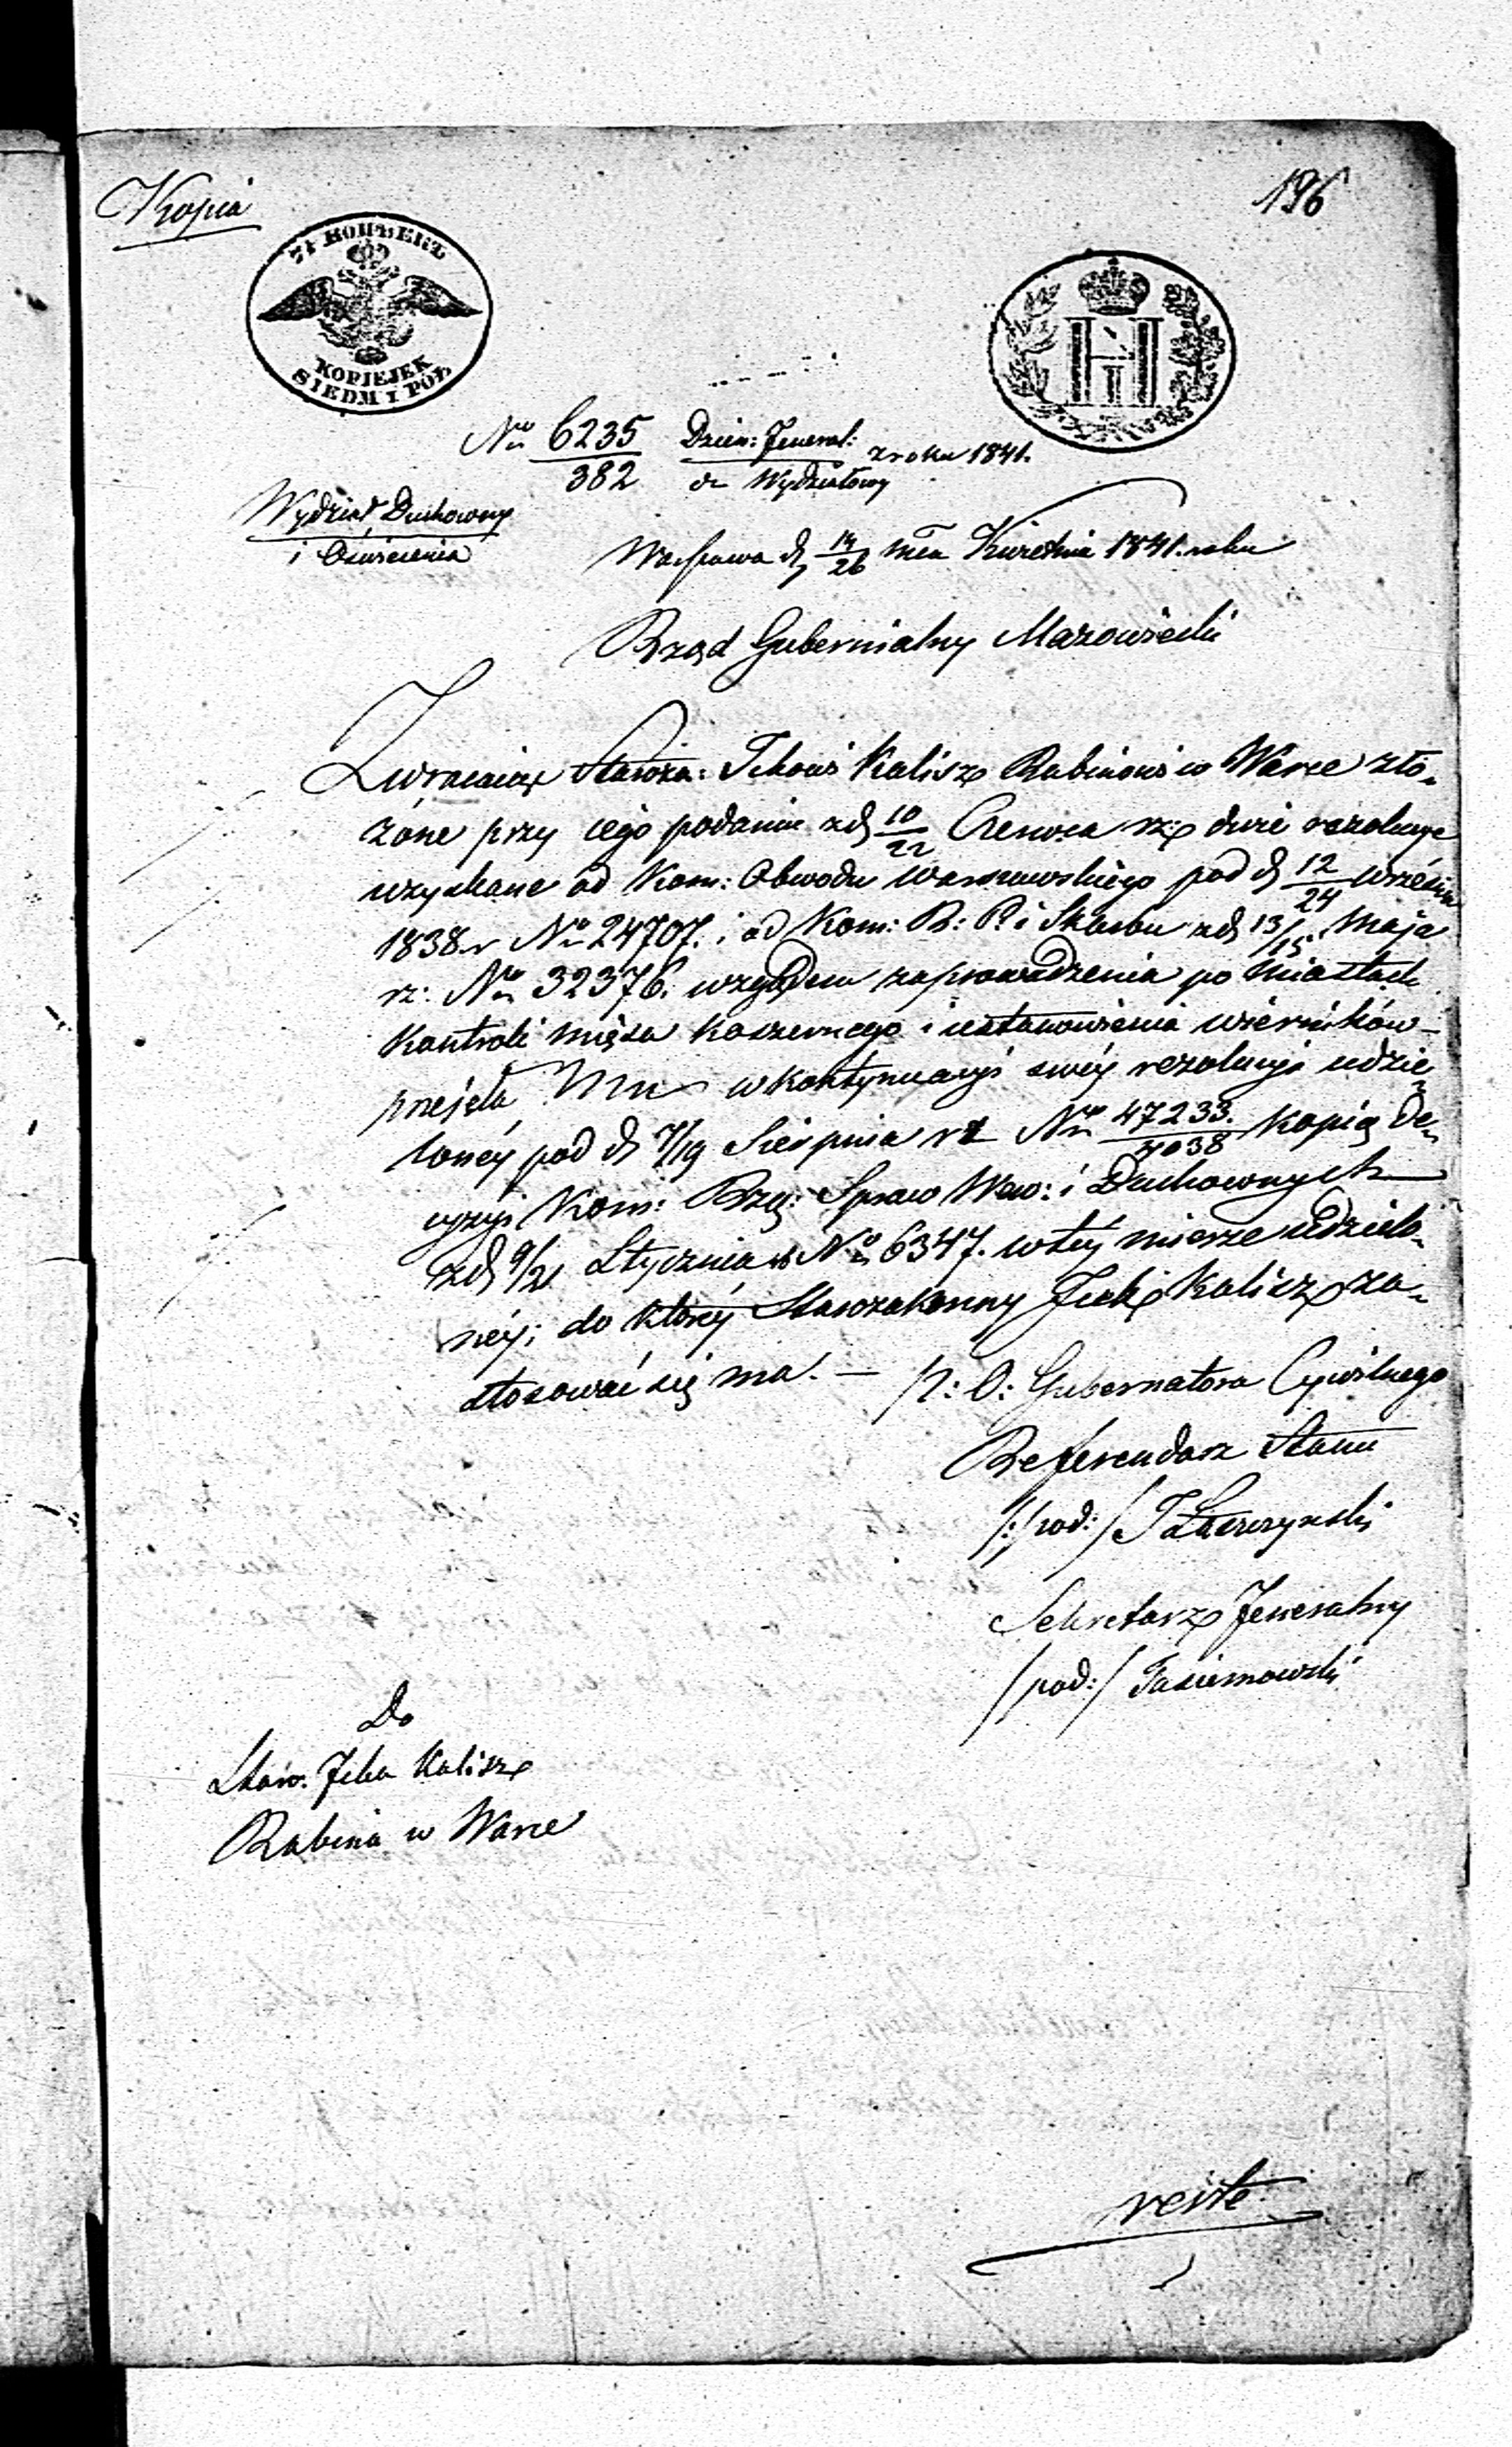 Kopia
196
7½ КОПѢЕКЪ
KOPIEJEK
SIEDM I PÓŁ
N
Nro 6235 Dzien: Jeneral: z roku 1841.
382 Wydziałowy
Wydział Duchowny
i Oświecenia
Warszawa d. 14/26 mca Kwietnia 1841. roku
Rząd Gubernialny Mazowiecki
Zwracając Starоza: Kalisz Rabinowi w Warce zło-
żone przy jego podaniu z d. 10/22 Czerwca rz: dwie rezolucye
uzyskane od Kom: Obwodu warszawskiego pod d. 12/24 września
1838 r No 24707. i od Kom: R: P. i Skarbu z d. 13/15 Maja
rz: Nro 32376. względem zaprowadzenia po miastach
kontroli mięsa koszernego i ustanowienia wierników
przesyła Mu w kontynuacyi swéy rezolucyi udzie-
lonéy pod d. 7/19 Sierpnia rz Nro 47233./7038 kopią De-
cyzyi Kom: Rzą: Spraw Wew: i Duchownych
z d. 9/21 Stycznia rb No 6347. w téy mierze udzielo-
néy; do któréy Starozakonny Jcek Kalisz za-
stosować się ma. —
p: O: Gubernatora Cywilnego
Referendarz Stanu
/: pod: / Łaszczyński
Sekretarz Jeneralny
/ pod: /
Do
Staro. Kalisz
Rabina w Warce
verte